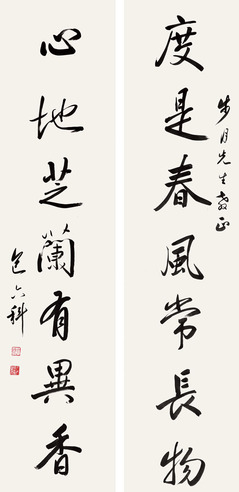 度是春風常長物
步月先生教正
心地芝蘭有異香
包六科